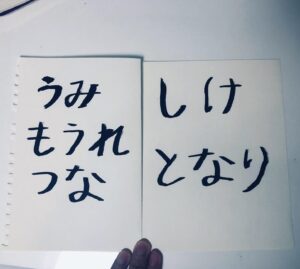 うみ
もうれ
つな
しけ
となり